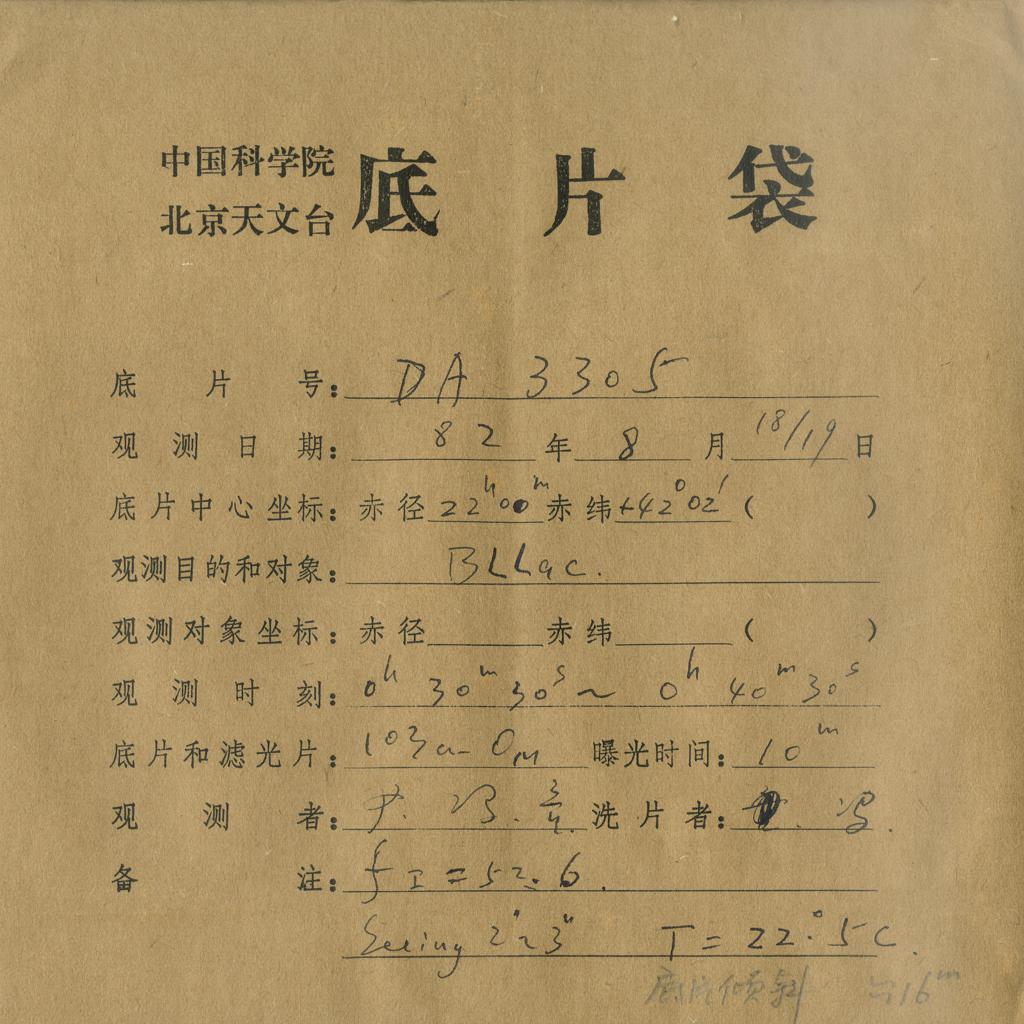 中国科学院
北京天文台
底片袋
底片号：DA 3305
观测日期：82年8月18/19日
底片中心坐标：赤径22h00m赤纬+42°02′（ ）
观测目的和对象：BLLac.
观测对象坐标：赤径 赤纬 （ ）
观测时刻：0h 30m 30s ~ 0h 40m 30s
底片和滤光片：103a-O 曝光时间：10m
观测者： 洗片者：
备注：f = 52.6.
Seeing 2"~3" T = 22°.5C.
底片倾斜 16m